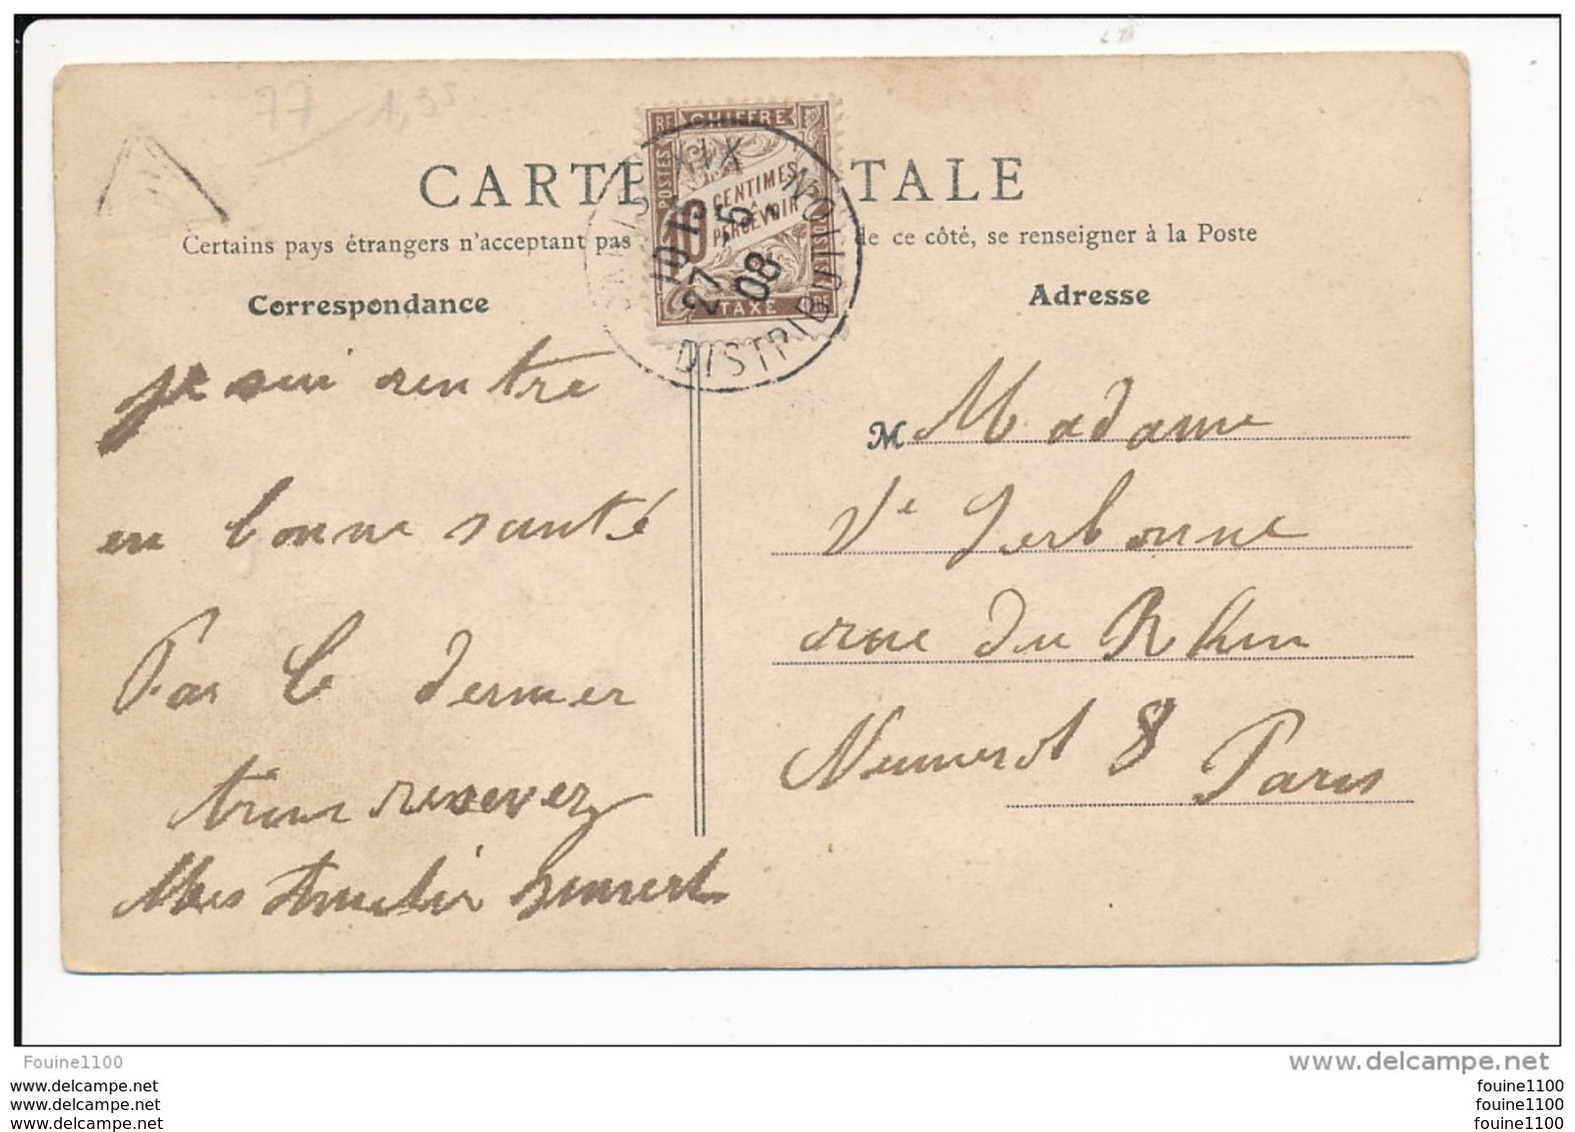 77 1,35
CARTE POSTALE
Certains pays étrangers n'acceptant pas de ce côté, se renseigner à la Poste
Correspondance
Adresse
RF CHIFFRE
POSTES
10 CENTIMES
À
PERCEVOIR
POSTES
TAXE
PARIS XIX DISTRIBUTION
10 15
27 -5
08
je sui rentre
en bonne santé
Par le dernier
recevez
M Madame
Ve Jerbonne
rue du Rhin
Numerot 8 Paris
Fouine1100
www.delcampe.net
www.delcampe.net
www.delcampe.net
www.delcampe.net
fouine1100
fouine1100
fouine1100